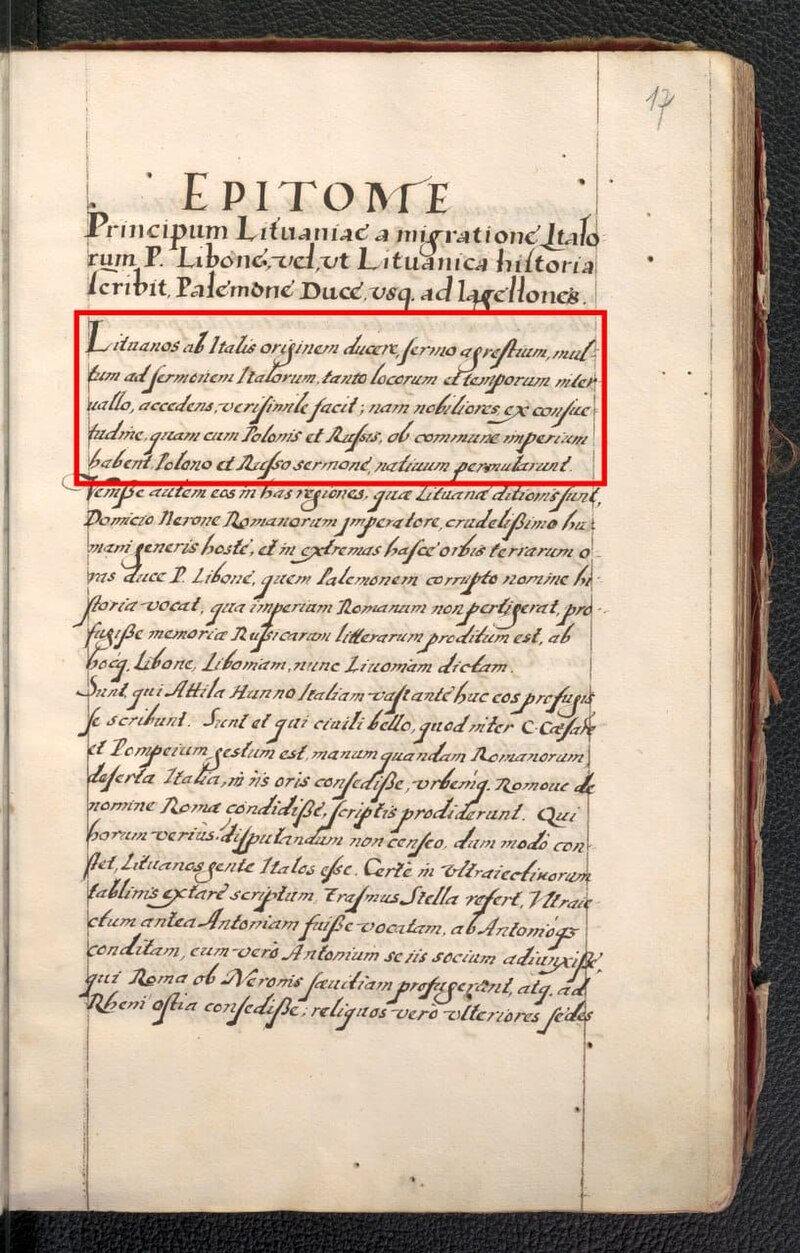 17
EPITOME
Principum Lituaniae a migratione Italo
rum P. Libone, vel, vt Lituanica historia
scribit, Palemone Duce, vsq. ad Iagellones.
Lituanos ab Italis originem ducere, sermo agrestium, mul-
tum ad sermonem Italorum, tanto locorum et temporum inter
uallo, accedens, verisimile facit; nam nobiliores ex consue
tudine, quam cum Polonis et Russis, ob commune imperium
habent, Polono et Russo sermone, natiuum permutarunt.
Venisse autem eos in has regiones, quae Lituanae ditionis sunt,
Domicio Nerone Romanorum Imperatore, crudelissimo hu
mani generis hoste, et in extremas hasce orbis terrarum o-
ras duce P. Libone, quem Palemonem corrupto nomine hi
storia vocat, qua imperium Romanum non pertigerat, pro-
fugisse memoriae Russicarum litterarum proditum est, ab
hocq. Libone, Liboniam, nunc Liuoniam dictam.
Sunt qui Attila Hunno Italiam vastante huc eos profugis
se scribunt. Sunt et qui ciuili bello, quod inter C. Caesare
et Pompeium gestum est, manum quandam Romanorum,
deserta Italia, in iis oris consedisse, vrbemq. Romoue de
nomine Romae condidisse, scriptis prodiderunt. Qui
horum verius, disputandum non censeo, dum modo con
stet, Lituanos gente Italos esse. Certe in Vltraiectinorum
tablinis extare scriptum, Erasmus Stella refert, Vltraie
ctum antea Antoniam fuisse vocatam, ab Antonioq;
conditam, eum vero Antonium se iis socium adiunxisse,
qui Roma ob Neronis saeuitiam profugerant, atq. ad
Rheni ostia consedisse; reliquos vero vlteriores sedes